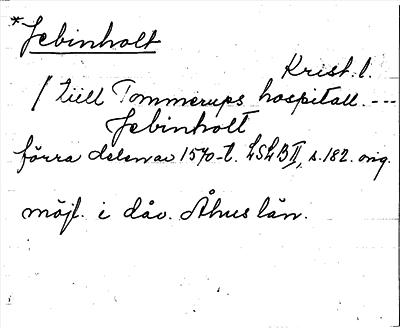 *Jebinholt
Krist. l.
/ till Tommerups hospitall. ---
Jebinholt
förra delen av 1570-t. LSLB II, s. 182. orig.
möjl. i dåv. Åhus län.